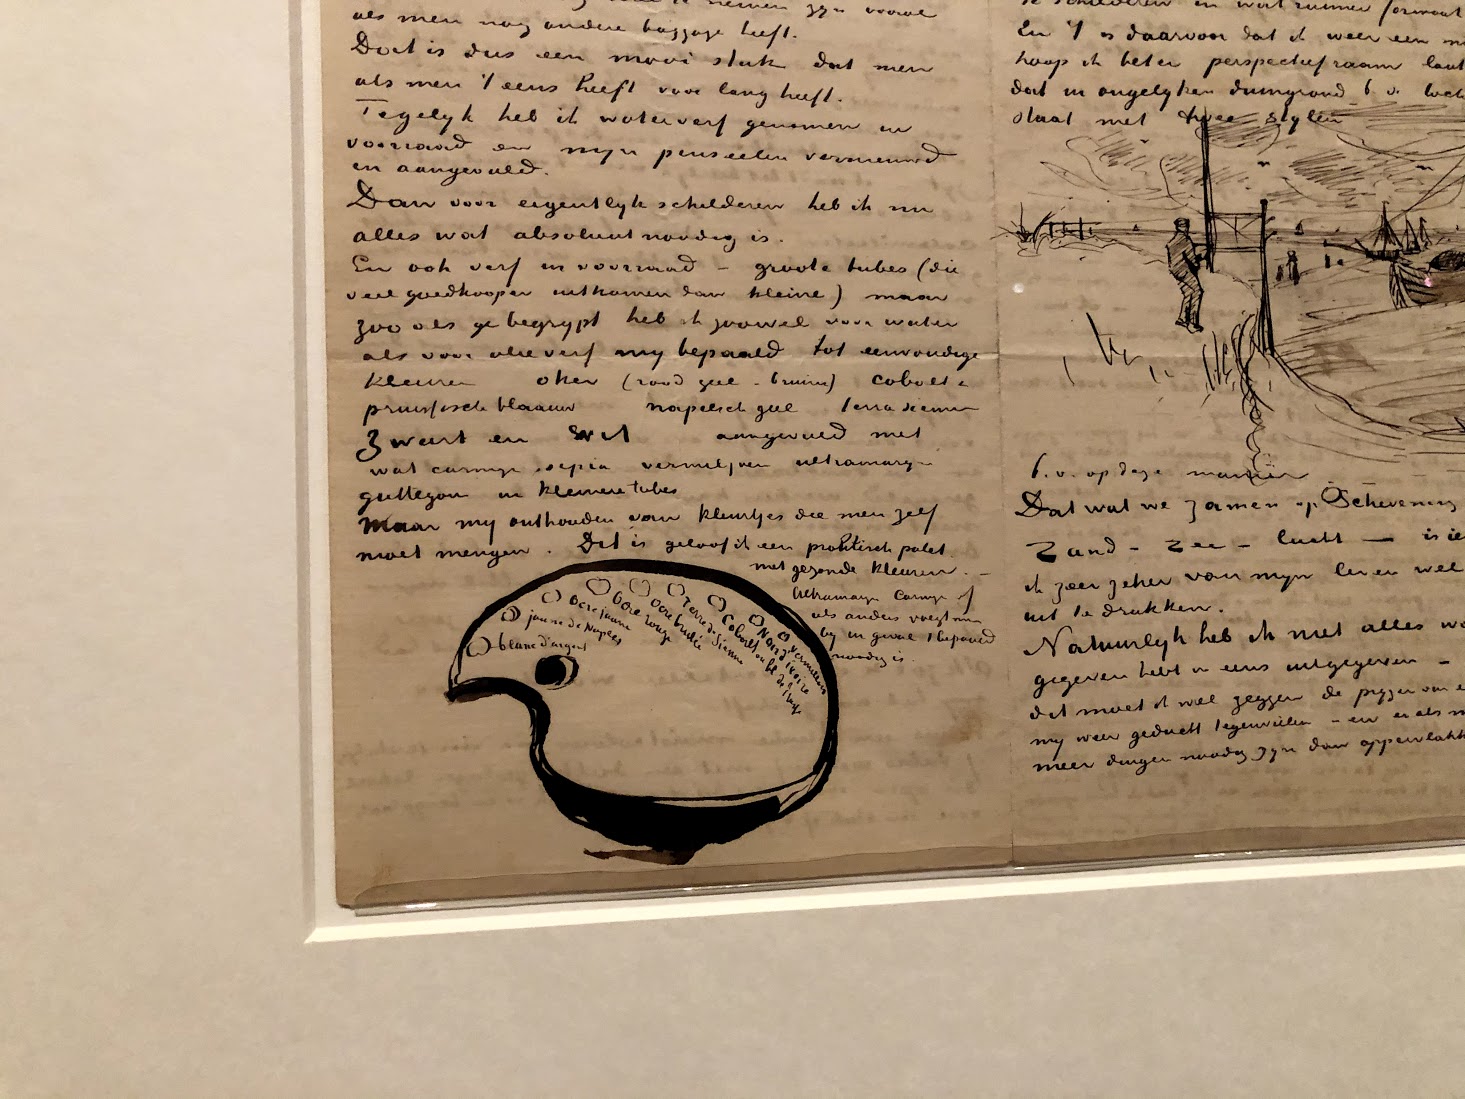 als men nog andere baggage heeft.
Dat is dus een mooi stuk dat men
als men 't eens heeft voor lang heeft.
Tegelyk heb ik waterverf genomen in
voorraad en myn penseelen vernieuwd
en aangevuld.
Dan voor eigentlyk schilderen heb ik nu
alles wat absoluut noodig is.
En ook verf in voorraad – groote tubes (die
veel goedkooper uitkomen dan kleine) maar
zoo als ge begrypt heb ik zoowel voor water
als voor olieverf my bepaald tot eenvoudige
kleuren oker (rood geel – bruin) cobalt &
pruissisch blaauw napelsch geel terra sienna
zwart en wit aangevuld met
wat carmyn sepia vermiljoen ultramaryn
guttegom in kleinere tubes
Maar my onthouden van kleurtjes die men zelf
moet mengen. Dit is geloof ik een praktisch palet
met gezonde kleuren. –
Ultramaryn Carmyn of
als anders voegt men
by in geval 't bepaald
noodig is.
blanc d'argent
jaune de Naples
Ocre jaune
Ocre rouge
Ocre brulée
Terre de Sienne
Cobalt ou bl. de Prusse
Noir d'ivoire
Vermillon
te schilderen en wat ruimer
En 't is daarvoor dat ik weer een
hoop ik beter perspectiefraam
dat in ongelyken duingrond b.v.
staat met twee stylen
b.v. op deze manier
Dat wat we zamen op Schevening
Zand – Zee – lucht – is
ik zeer zeker van myn leven wel
uit te drukken.
Natuurlyk heb ik niet alles
gegeven hebt in eens uitgegeven –
dat moet ik wel zeggen de pryzen van
my weer geducht tegenvielen – en er als
meer dingen noodig zyn dan oppervlakk